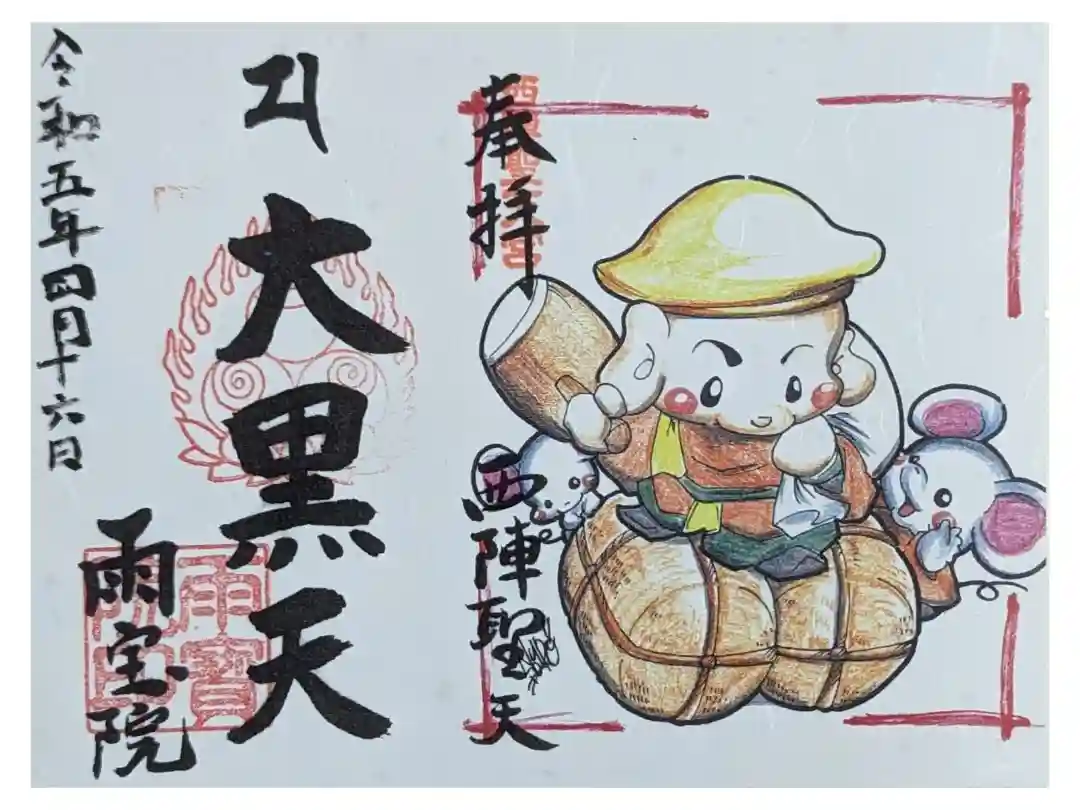 奉拝
西陣聖天
大黒天
雨宝院
雨寳
令和五年四月十六日